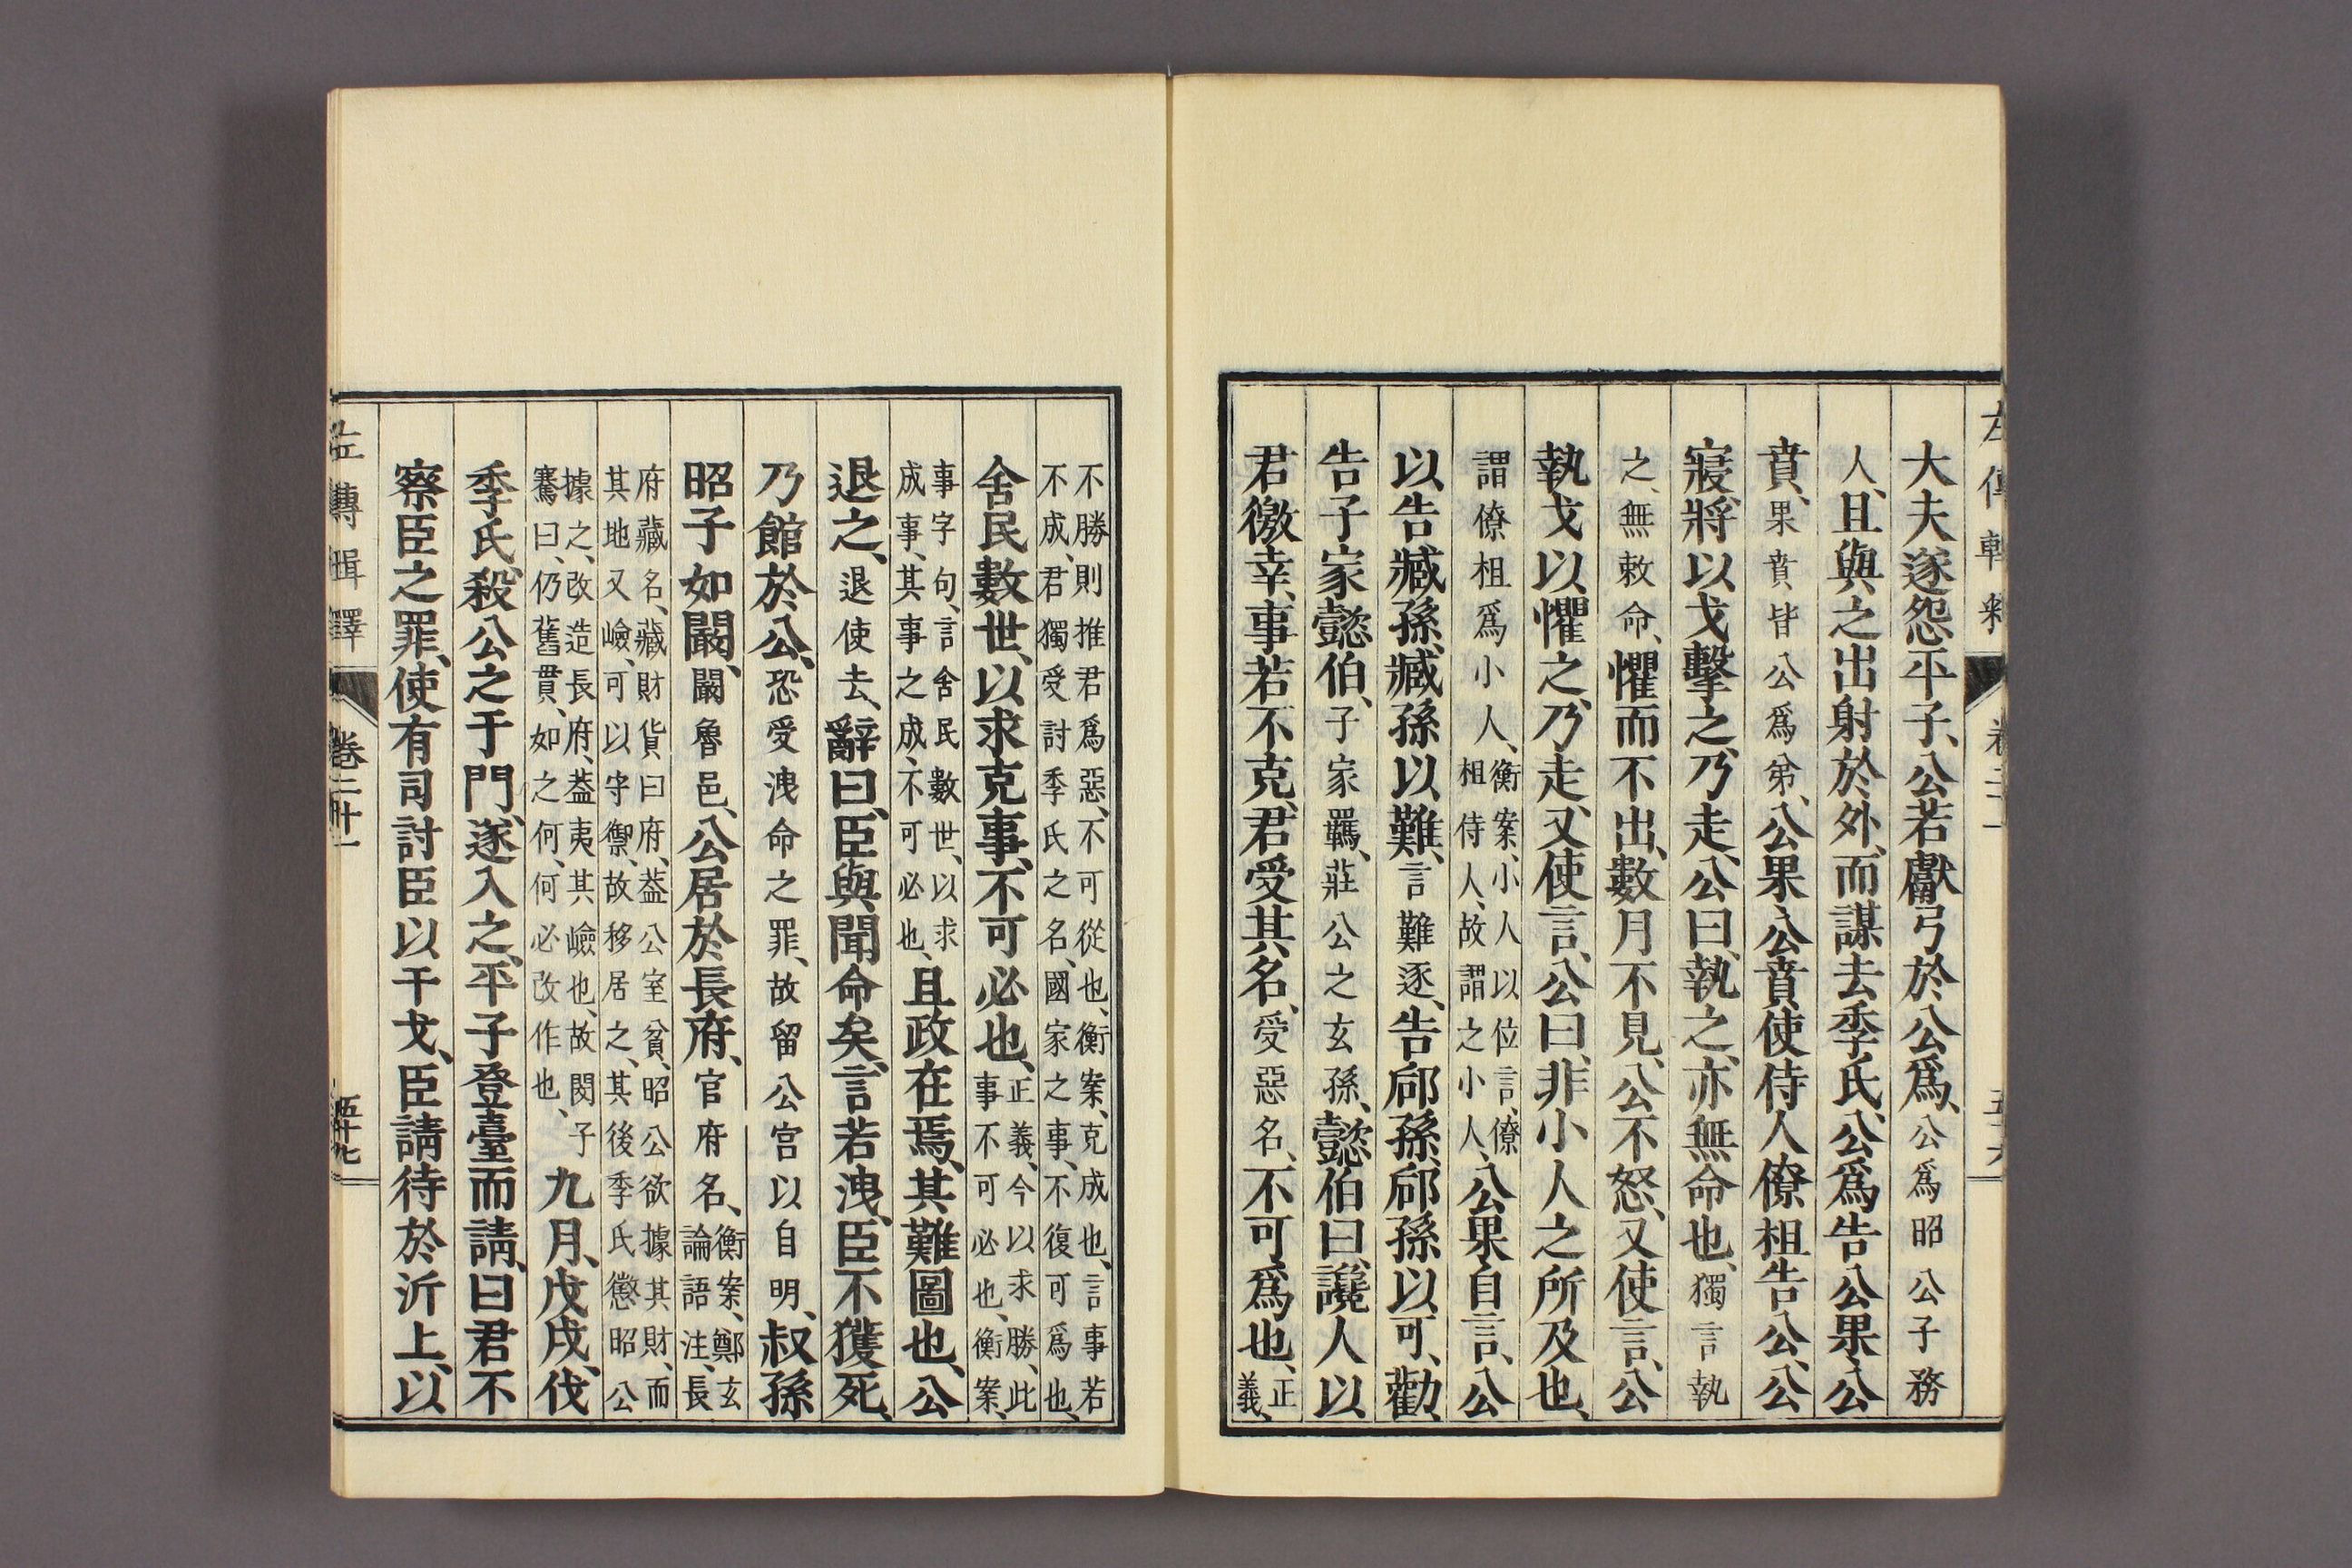 大夫遂怨平子、公若獻弓於公爲、公爲昭公子務
人、且與之出射於外、而謀去季氏、公爲告公果、公
賁、果賁皆公爲弟、公果、公賁、使侍人僚柤告公、公
寢、將以戈擊之、乃走、公曰、執之、亦無命也、獨言執
之、無敕命、懼而不出、數月不見、公不怒、又使言、公
執戈以懼之、乃走、又使言、公曰、非小人之所及也、
謂僚柤爲小人、衡案、小人以位言、僚柤侍人、故謂之小人、公果自言、公
以告臧孫、臧孫以難、言難逐、告郈孫、郈孫以可、勸、
告子家懿伯、子家羈、莊公之玄孫、懿伯曰、讒人以
君徼幸、事若不克、君受其名、受惡名、不可爲也、正義、
不勝則推君爲惡、不可從也、衡案、克成也、言事若
不成、君獨受討季氏之名、國家之事、不復可爲也、
舍民數世、以求克事、不可必也、正義、今以求勝、此事不可必也、衡案、
事字句、言舍民數世、以求成事、其事之成、不可必也、且政在焉、其難圖也、公
退之、退使去、辭曰、臣與聞命矣、言若洩、臣不獲死、
乃館於公、恐受洩命之罪、故留公宮以自明、叔孫
昭子如闞、闞魯邑、公居於長府、官府名、衡案、鄭玄論語注、長
府藏名、藏財貨曰府、葢公室貧、昭公欲據其財、而
其地又嶮、可以守禦、故移居之、其後季氏懲昭公
據之、改造長府、葢夷其嶮也、故閔子騫曰、仍舊貫、如之何、何必改作也、九月、戊戌、伐
季氏、殺公之于門、遂入之、平子登臺而請、曰君不
察臣之罪、使有司討臣以干戈、臣請待於沂上、以
左傳輯釋 卷二十一 五十七